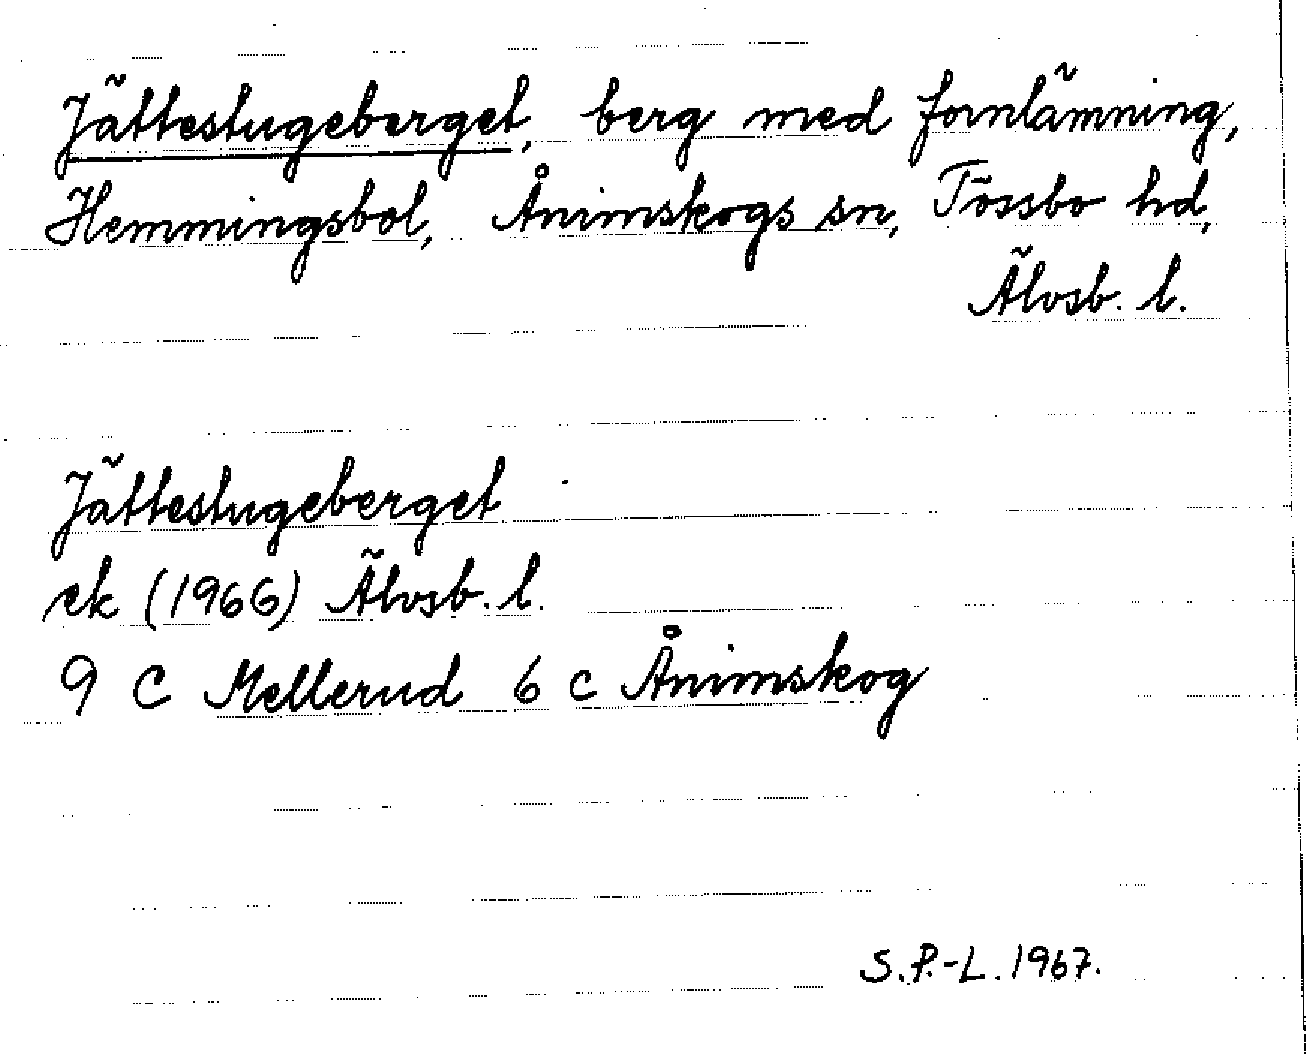 Jättestugeberget, berg med fornlämning,
Hemmingsbol, Ånimskogs sn, Tössbo hd,
Älvsb. l.
Jättestugeberget
ek (1966) Älvsb. l.
9 C Mellerud 6 c Ånimskog
S.P.-L. 1967.